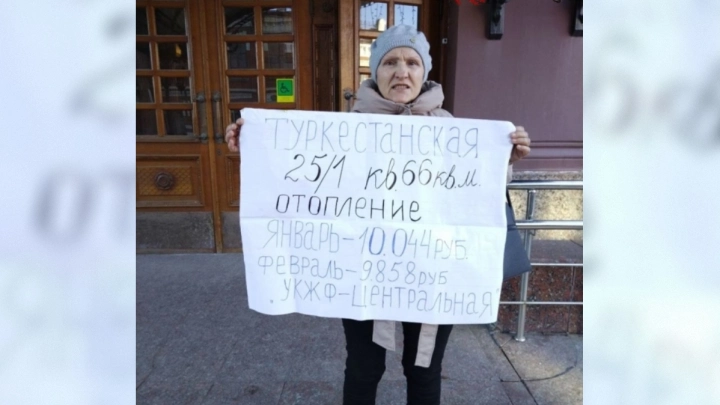 ТУРКЕСТАНСКАЯ
25/1 кв.66кв.м.
ОТОПЛЕНИЕ
ЯНВАРЬ-10.044РУБ.
ФЕВРАЛЬ-9.858РУБ
"УКЖФ-ЦЕНТРАЛЬНАЯ"